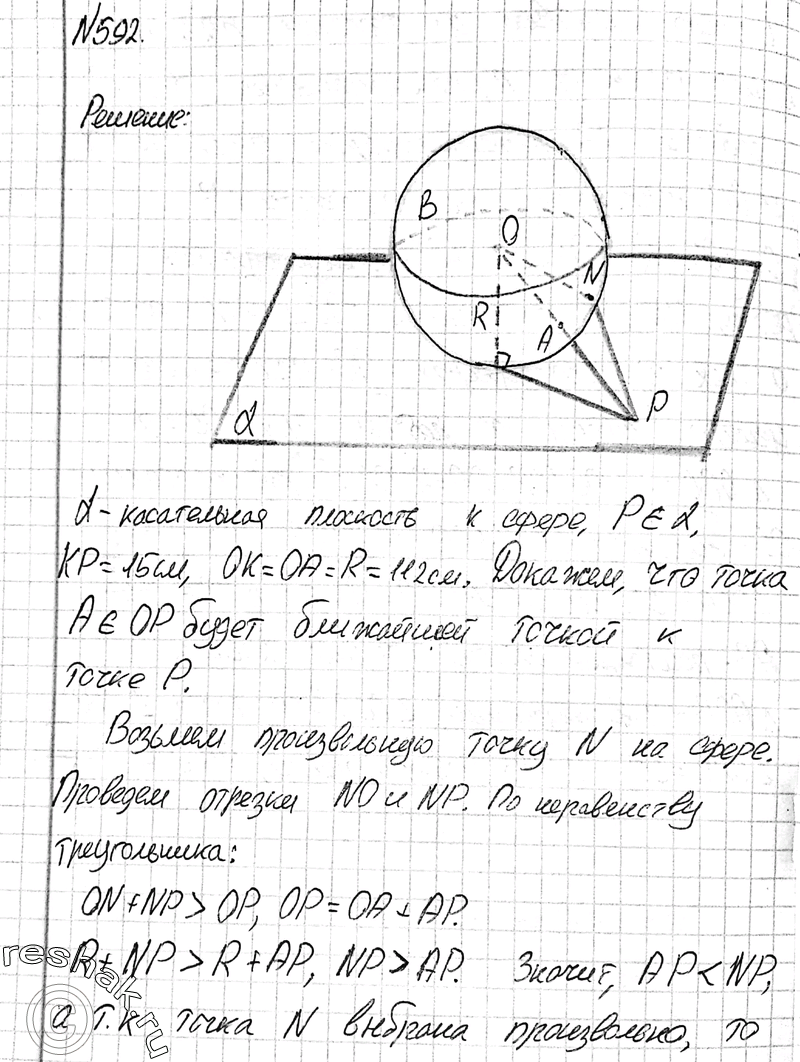 №592.
Решение:
B
O
N
R
A
P
α
α - касательная плоскость к сфере, P ∈ α,
KP = 15см, OK = OA = R = 112см. Докажем, что точка
A ∈ OP будет ближайшей точкой к
точке P.
Возьмем произвольную точку N на сфере.
Проведем отрезки NO и NP. По неравенству
треугольника:
ON + NP > OP, OP = OA + AP.
R + NP > R + AP, NP > AP. Значит, AP < NP,
а т.к точка N выбрана произвольно, то
reshak.ru